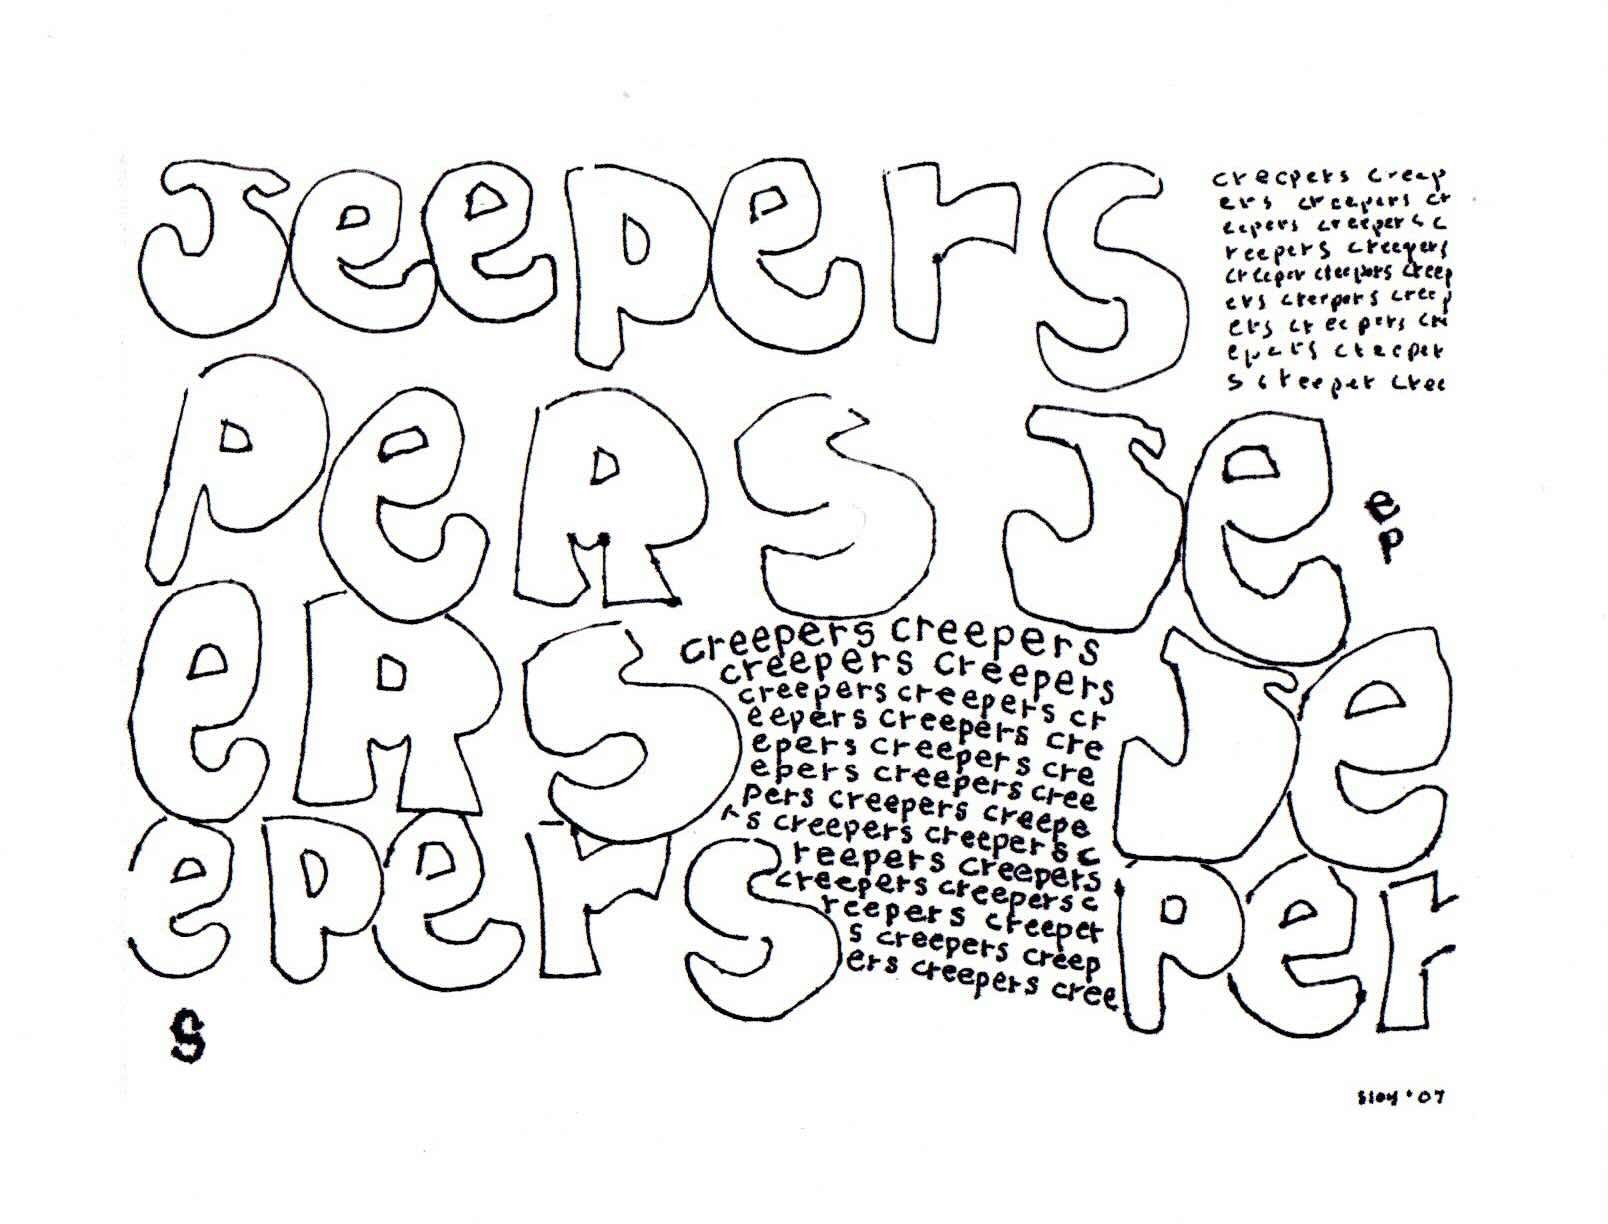 Jeepers
crecpers creep
ers creepers cr
eepers creepers c
reepers creepers
creeper creepers creep
ers creepers creep
ers creepers cre
epers creeper
s creeper cree
peRs Je
e
p
eRs
creepers creepers
creepers creepers
creepers creepers cr
eepers creepers cre
epers creepers cre
epers creepers cree
pers creepers creepe
rs creepers creepers c
reepers creepers
creepers creepers c
reepers creeper
s creepers creep
ers creepers cree
Je
epers
per
s
sloy '07